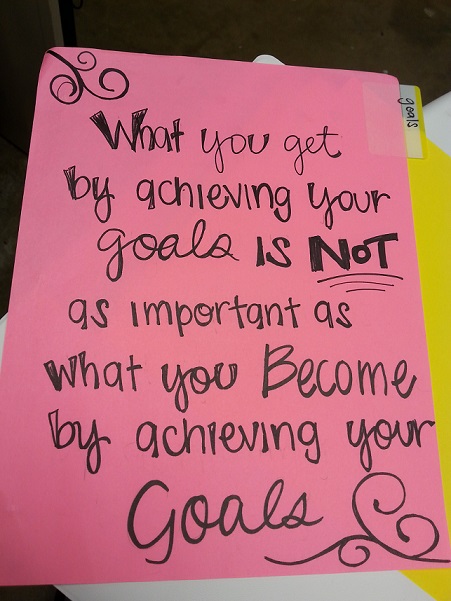 goals
What you get
by achieving your
goals is NOT
as important as
what you Become
by achieving your
Goals